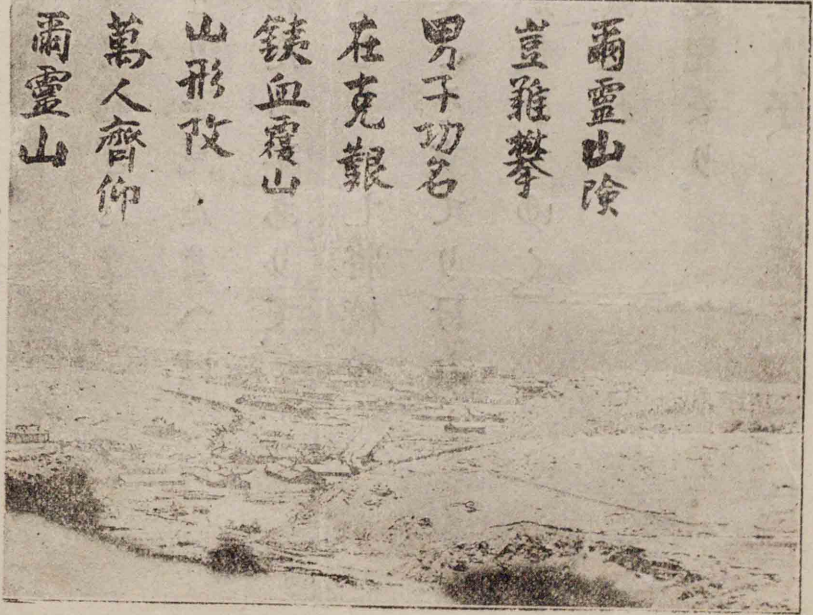 爾靈山險
豈難攀
男子功名
在克艱
銕血覆山
山形改
萬人齊仰
爾靈山